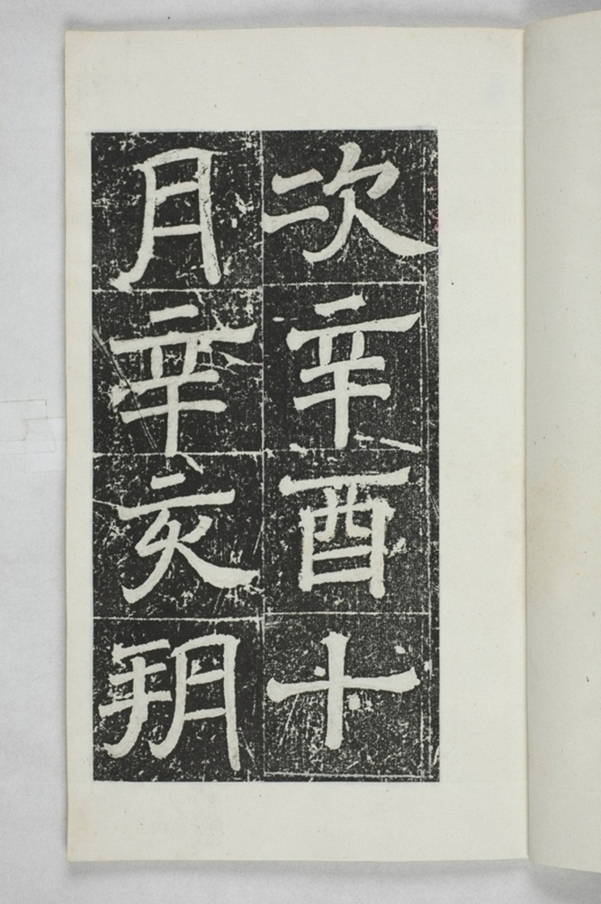 次辛酉十
月辛亥朔